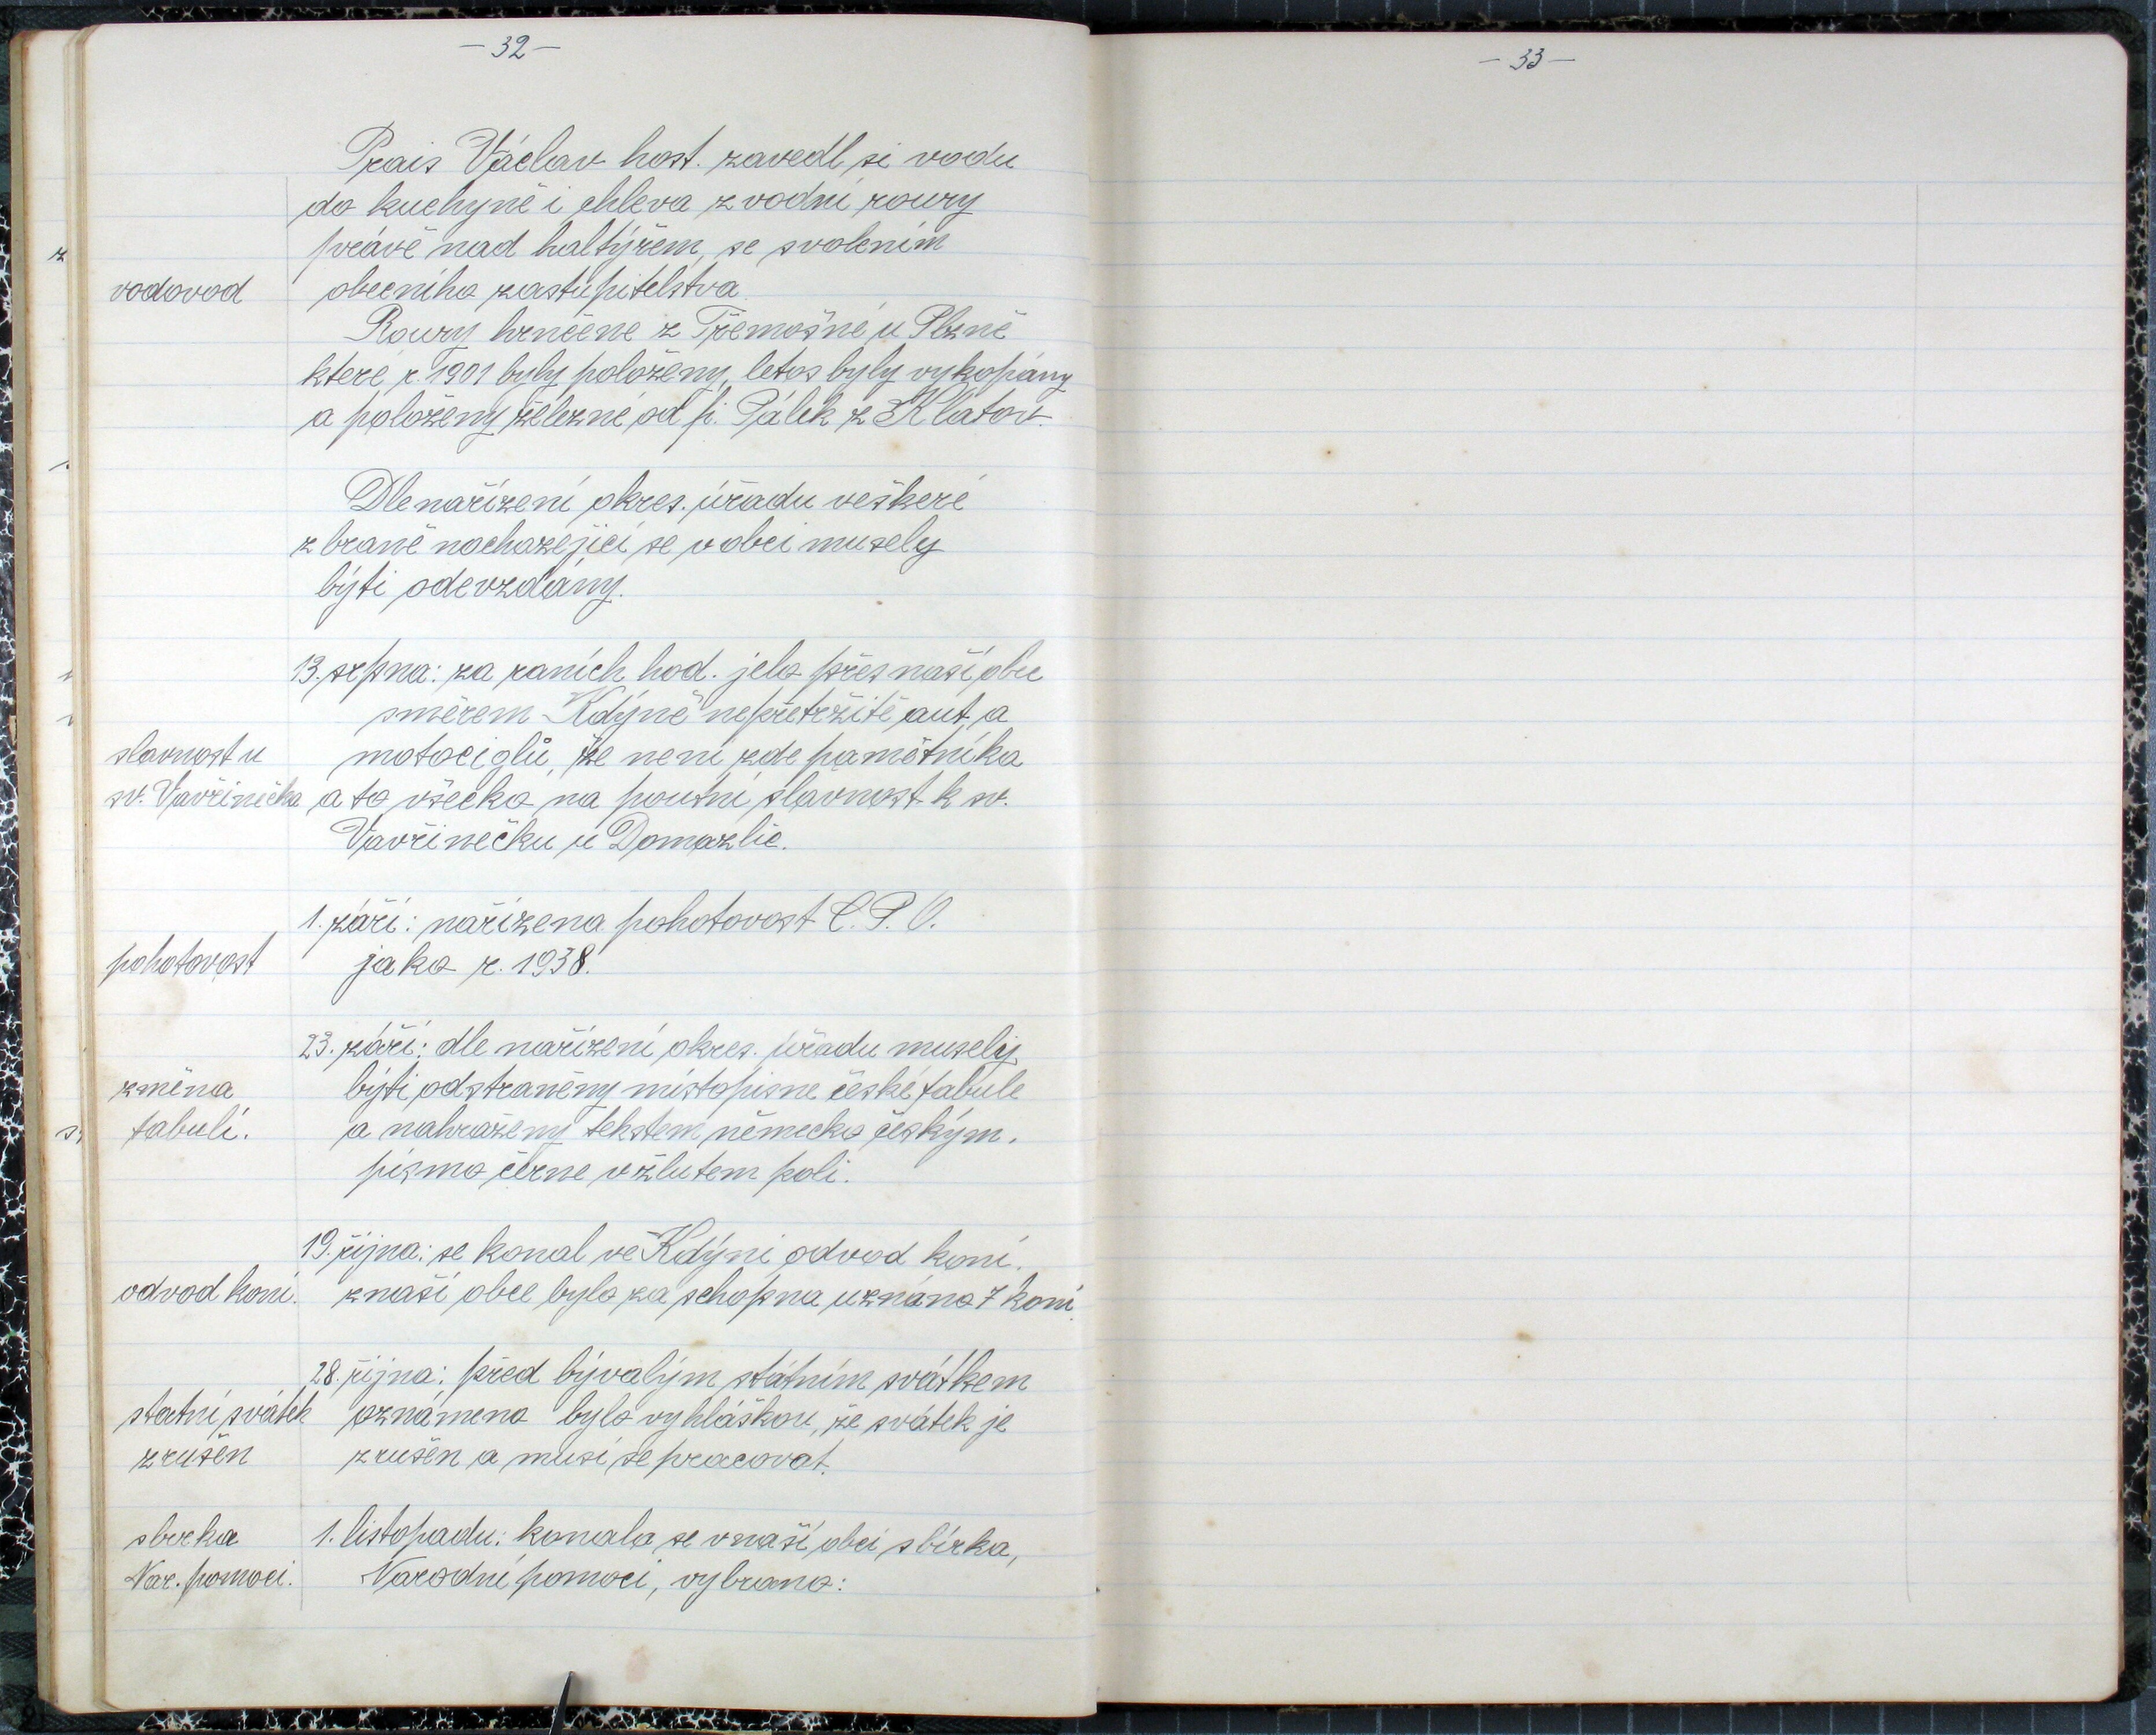 - 32 -
Prais Václav host. zavedl si vodu
do kuchyně i chleva z vodní roury
právě nad haltýřem, se svolením
vodovod obecního zastupitelstva
Roury hrnčené z Třemošné u Plzně
které r. 1901 byly položeny, letos byly vykopány
a položeny železné od fi. Pálek z Klatov.
Dle nařízení okres. úřadu veškeré
zbraně nacházející se v obci musely
býti odevzdány.
13. srpna: za raních hod. jelo přes naší obec
směrem Kdýně nepřetržitě aut a
slavnost u motociglů, že není zde pamětníka
sv. Vavřinečka a to všecko na poutní slavnost k sv.
Vavřinečku u Domažlic.
1. září: nařízena pohotovost C. P. O.
pohotovost jako r. 1938.
23. září: dle nařízení okres. úřadu musely
změna býti odstraněny místopisne české tabule
tabulí. a nahraženy tekstem německo českým.
písmo černe v žlutem poli.
19. října: se konal ve Kdýni odvod koní.
odvod koní. z naší obce bylo za schopna uznáno 7 koní.
28. října: před bývalým státním svátkem
statní svátek oznámeno bylo vyhláškou, že svátek je
zrušen zrušen a musí se pracovat.
sbirka 1. listopadu: konala se v naší obci sbírka,
Nár. pomoci. Narodní pomoci, vybrano:
- 33 -